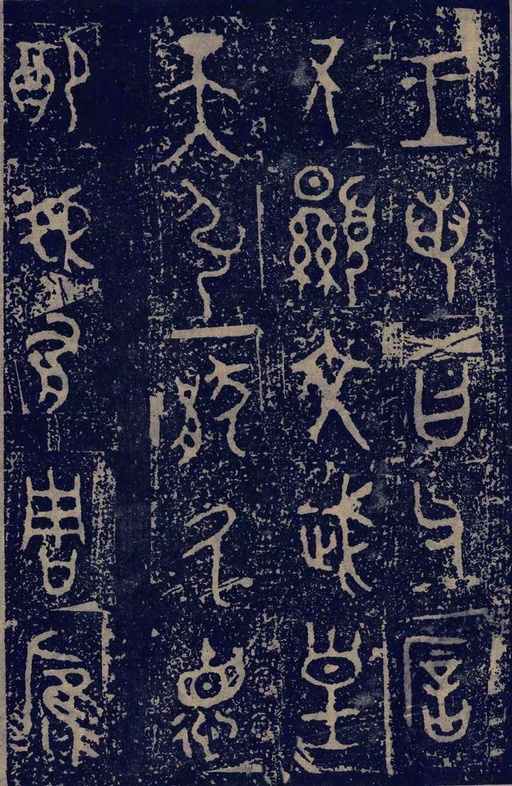 王若曰父厝
不顯文武皇
天引猒氒德
配我有周膺